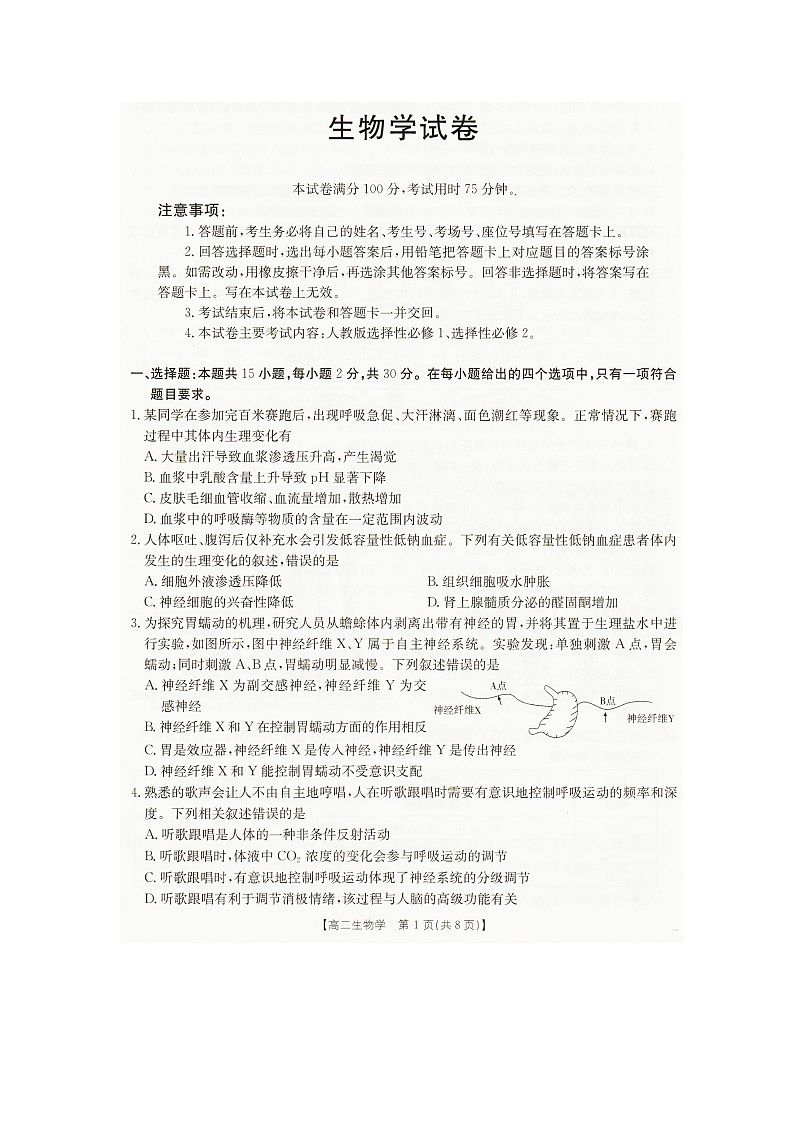 生物学试卷
本试卷满分100分,考试用时75分钟。
注意事项:
1.答题前,考生务必将自己的姓名、考生号、考场号、座位号填写在答题卡上。
2.回答选择题时,选出每小题答案后,用铅笔把答题卡上对应题目的答案标号涂
黑。如需改动,用橡皮擦干净后,再选涂其他答案标号。回答非选择题时,将答案写在
答题卡上。写在本试卷上无效。
3.考试结束后,将本试卷和答题卡一并交回。
4.本试卷主要考试内容:人教版选择性必修1、选择性必修2。
一、选择题:本题共15小题,每小题2分,共30分。在每小题给出的四个选项中,只有一项符合
题目要求。
1.某同学在参加完百米赛跑后,出现呼吸急促、大汗淋漓、面色潮红等现象。正常情况下,赛跑
过程中其体内生理变化有
A.大量出汗导致血浆渗透压升高,产生渴觉
B.血浆中乳酸含量上升导致pH显著下降
C.皮肤毛细血管收缩、血流量增加,散热增加
D.血浆中的呼吸酶等物质的含量在一定范围内波动
2.人体呕吐、腹泻后仅补充水会引发低容量性低钠血症。下列有关低容量性低钠血症患者体内
发生的生理变化的叙述,错误的是
A.细胞外液渗透压降低 B.组织细胞吸水肿胀
C.神经细胞的兴奋性降低 D.肾上腺髓质分泌的醛固酮增加
3.为探究胃蠕动的机理,研究人员从蟾蜍体内剥离出带有神经的胃,并将其置于生理盐水中进
行实验,如图所示,图中神经纤维X、Y属于自主神经系统。实验发现:单独刺激A点,胃会
蠕动;同时刺激A、B点,胃蠕动明显减慢。下列叙述错误的是
A.神经纤维X为副交感神经,神经纤维Y为交
感神经
B.神经纤维X和Y在控制胃蠕动方面的作用相反
C.胃是效应器,神经纤维X是传入神经,神经纤维Y是传出神经
D.神经纤维X和Y能控制胃蠕动不受意识支配
A点
神经纤维X
B点
神经纤维Y
4.熟悉的歌声会让人不由自主地哼唱,人在听歌跟唱时需要有意识地控制呼吸运动的频率和深
度。下列相关叙述错误的是
A.听歌跟唱是人体的一种非条件反射活动
B.听歌跟唱时,体液中CO₂浓度的变化会参与呼吸运动的调节
C.听歌跟唱时,有意识地控制呼吸运动体现了神经系统的分级调节
D.听歌跟唱有利于调节消极情绪,该过程与人脑的高级功能有关
【高二生物学 第1页(共8页)】